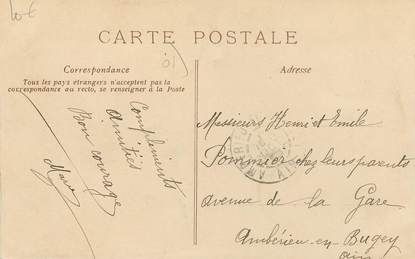 10€
CARTE POSTALE
Correspondance
Tous les pays étrangers n'acceptent pas la
correspondance au recto, se renseigner à la Poste
Compliments
amitiés
Bon courage
Marie
01
Adresse
Messieurs Henri et Emile
Pommier chez leurs parents
avenue de la Gare
Ambérieu-en-Bugey
Ain